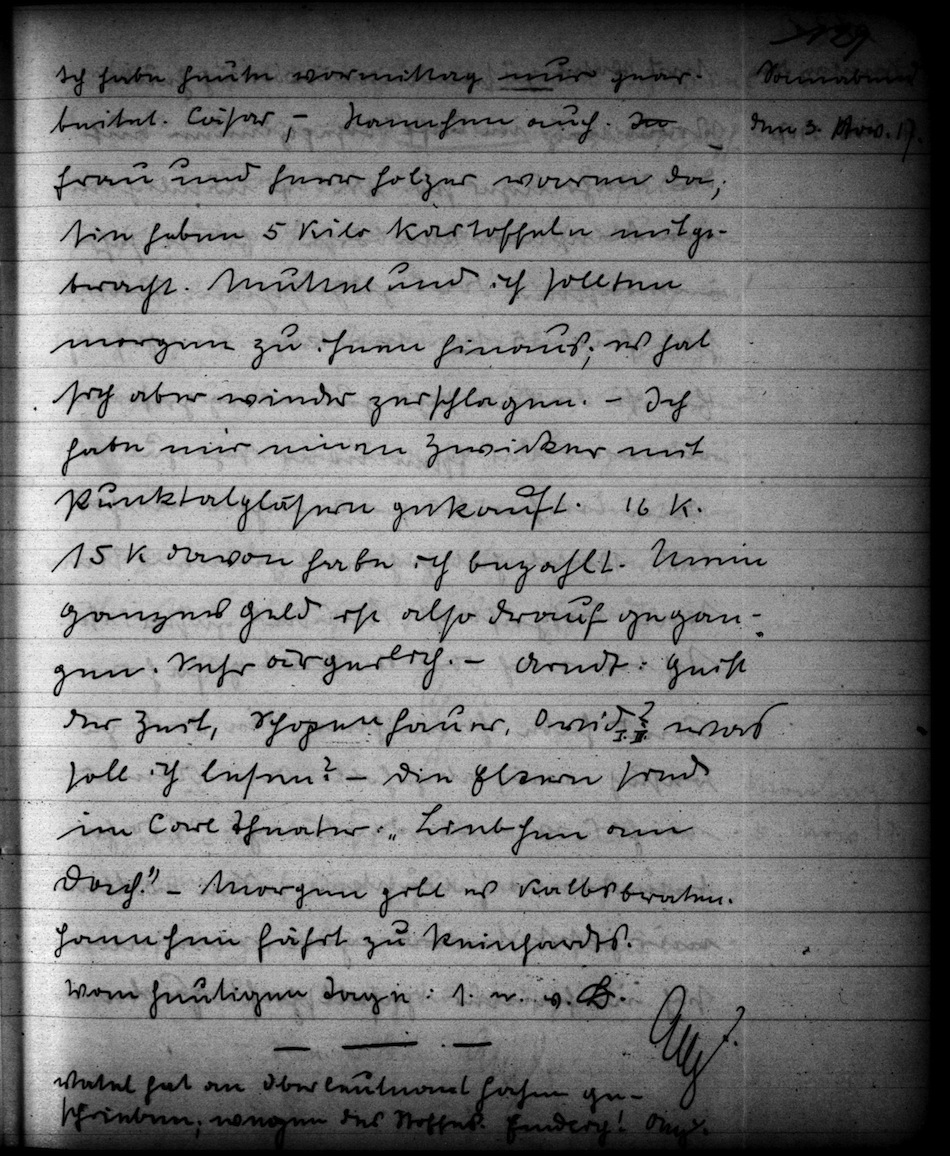 Sonnabend
den 3. Nov. 17.
Ich habe heute vormittag nur gear-
beitet. Cäsar, – Hannchen auch.
Frau und Herr Holzer waren da;
sie haben 5 Kilo Kartoffeln mitge-
bracht. Muttel und ich sollten
morgen zu ihnen hinaus; es hat
sich aber wieder zerschlagen. – Ich
habe mir einen Zwicker mit
Punktalgläsern gekauft. 16 K.
15 K davon habe ich bezahlt. Mein
ganzes Geld ist also drauf gegan-
gen. Sehr ärgerlich. – Arndt: Geist
der Zeit, Schopenhauer, Ovid I. II. ? was
soll ich lesen? – Die Eltern sind
im Carl Theater: „Liebchen am
Dach." – Morgen gibt es Kalbsbraten.
Hannchen fährt zu Reinhardts.
Vom heutigen Tage: 1. w. v. B.
Vatel hat an Oberleutnant Hahn ge-
schrieben; wegen des Stoffes. Endlich!